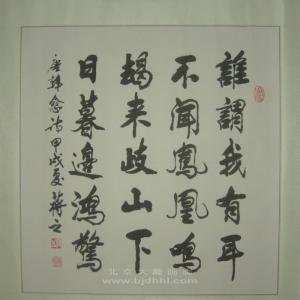 誰謂我有耳
不聞鳳凰鳴
朅来歧山下
日暮邊鴻驚
唐韩愈诗甲戌夏蔣之
北京大雕画廊
www.bjdhhl.com